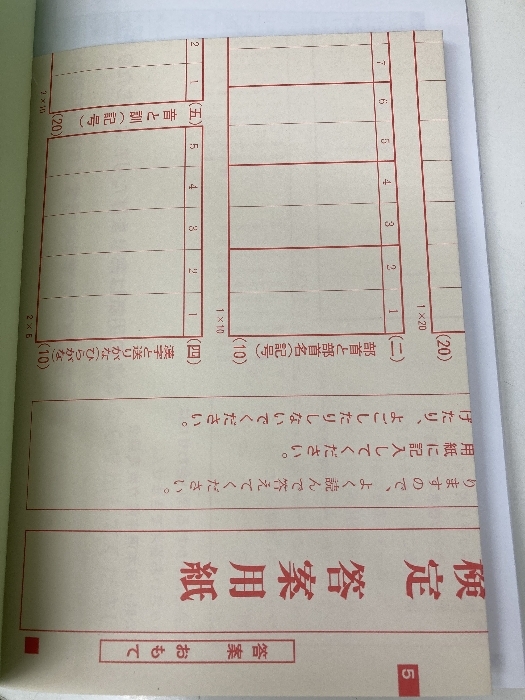 5
答案 おもて
検定 答案用紙
りますので、よく読んで答えてください。
用紙に記入してください。
げたり、よごしたりしないでください。
(20)
1×20
(二) 部首と部首名(記号) (10)
1×10
1
2
3
4
5
6
7
(四) 漢字と送りがな(ひらがな) (10)
2×5
1
2
3
4
5
(五) 音と訓(記号) (20)
2×10
1
2